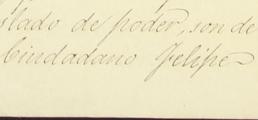 stado de poder, son de
Ciudadano Felipe